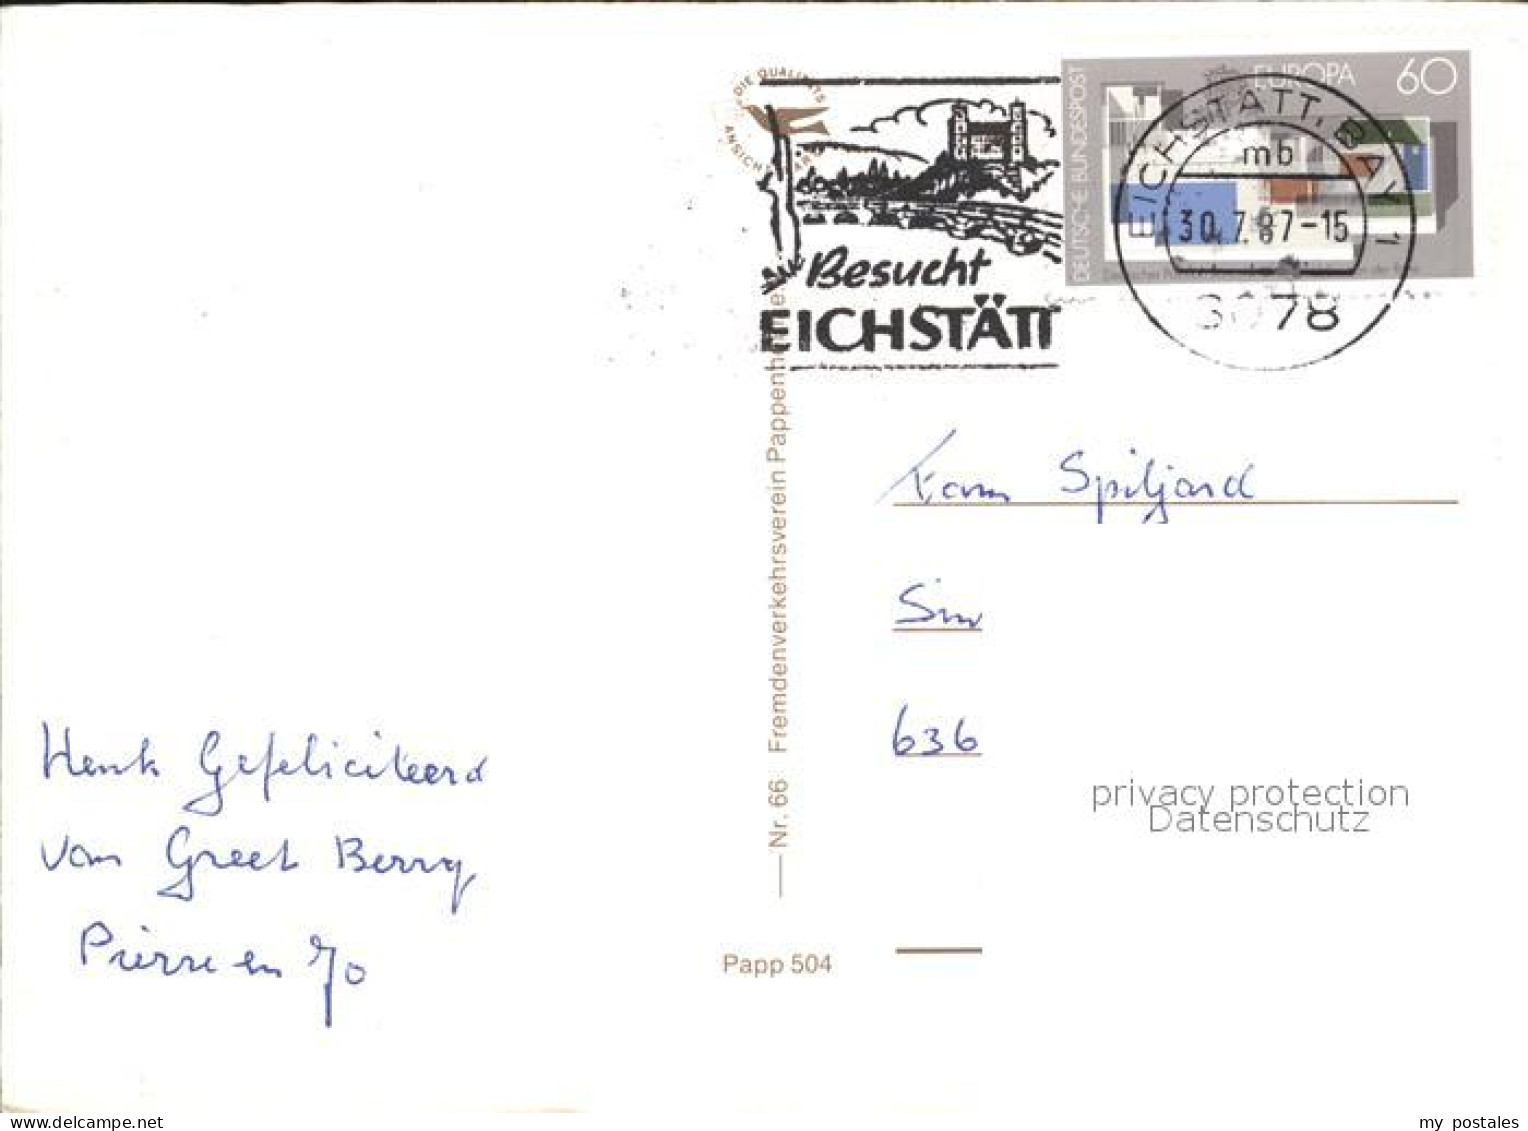 DIE QUALITÄTS
ANSICHTSKARTE
Besucht
EICHSTÄTT
DEUTSCHE BUNDESPOST
EUROPA 60
EICHSTÄTT, BAY 1
mb
30.7.87-15
8078
Fam Spiljard
636
Henk Gefeliciteerd
van Greet Berry
Pierre en Jo
Nr. 66 Fremdenverkehrsverein Pappenheim
Papp 504
privacy protection
Datenschutz
my postales